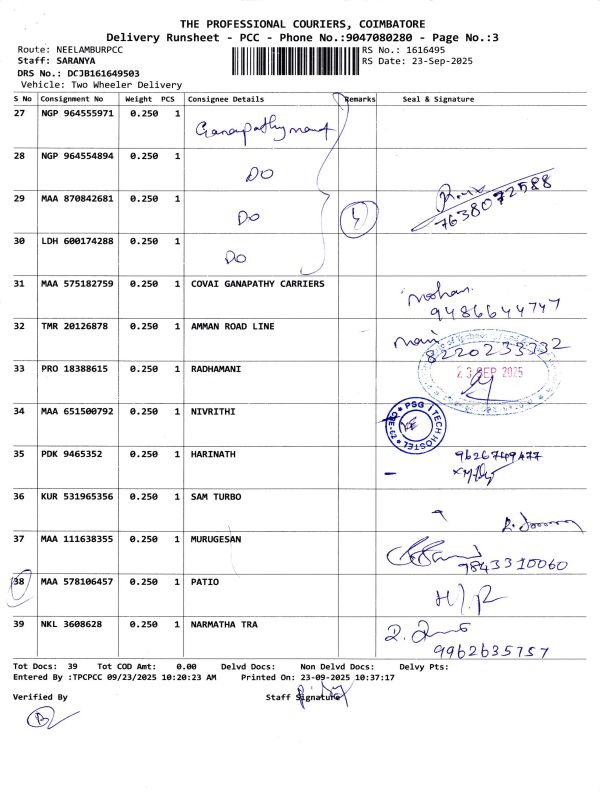 THE PROFESSIONAL COURIERS, COIMBATORE
Delivery Runsheet - PCC - Phone No.:9047080280 - Page No.:3
Route: NEELAMBURPCC RS No.: 1616495
Staff: SARANYA RS Date: 23-Sep-2025
DRS No.: DCJB161649503
Vehicle: Two Wheeler Delivery
S No Consignment No Weight PCS Consignee Details Remarks Seal & Signature
27 NGP 964555971 0.250 1
28 NGP 964554894 0.250 1 DO
29 MAA 870842681 0.250 1 DO 7638072588
30 LDH 600174288 0.250 1 DO
31 MAA 575182759 0.250 1 COVAI GANAPATHY CARRIERS mohan. 9486644747
32 TMR 20126878 0.250 1 AMMAN ROAD LINE mani 8220233232
33 PRO 18388615 0.250 1 RADHAMANI 23 SEP 2025
34 MAA 651500792 0.250 1 NIVRITHI PSG ITECH HOSTEL
35 PDK 9465352 0.250 1 HARINATH 9626749477
36 KUR 531965356 0.250 1 SAM TURBO
37 MAA 111638355 0.250 1 MURUGESAN 7843310060
38 MAA 578106457 0.250 1 PATIO
39 NKL 3608628 0.250 1 NARMATHA TRA 9962635757
Tot Docs: 39 Tot COD Amt: 0.00 Delvd Docs: Non Delvd Docs: Delvy Pts:
Entered By :TPCPCC 09/23/2025 10:20:23 AM Printed On: 23-09-2025 10:37:17
Verified By Staff Signature